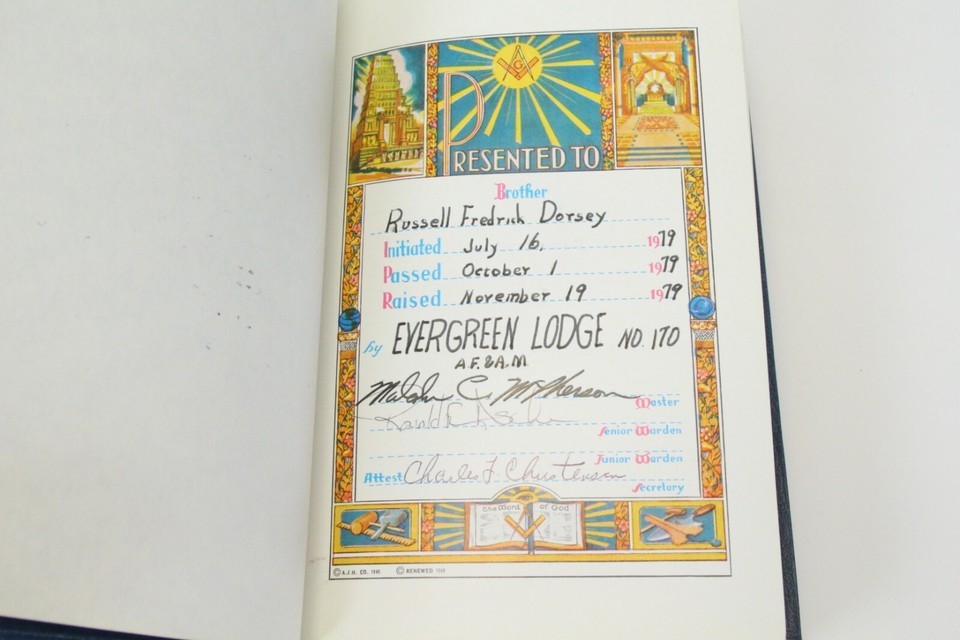 G
PRESENTED TO
Brother
Russell Fredrick Dorsey
Initiated July 16, 1979
Passed October 1 1979
Raised November 19 1979
by EVERGREEN LODGE NO. 170
A.F. & A.M.
Malcolm C. McPherson
Master
Senior Warden
Junior Warden
Attest Charles F. Christensen
Secretary
The Word of God
© A.J.H. CO. © RENEWED